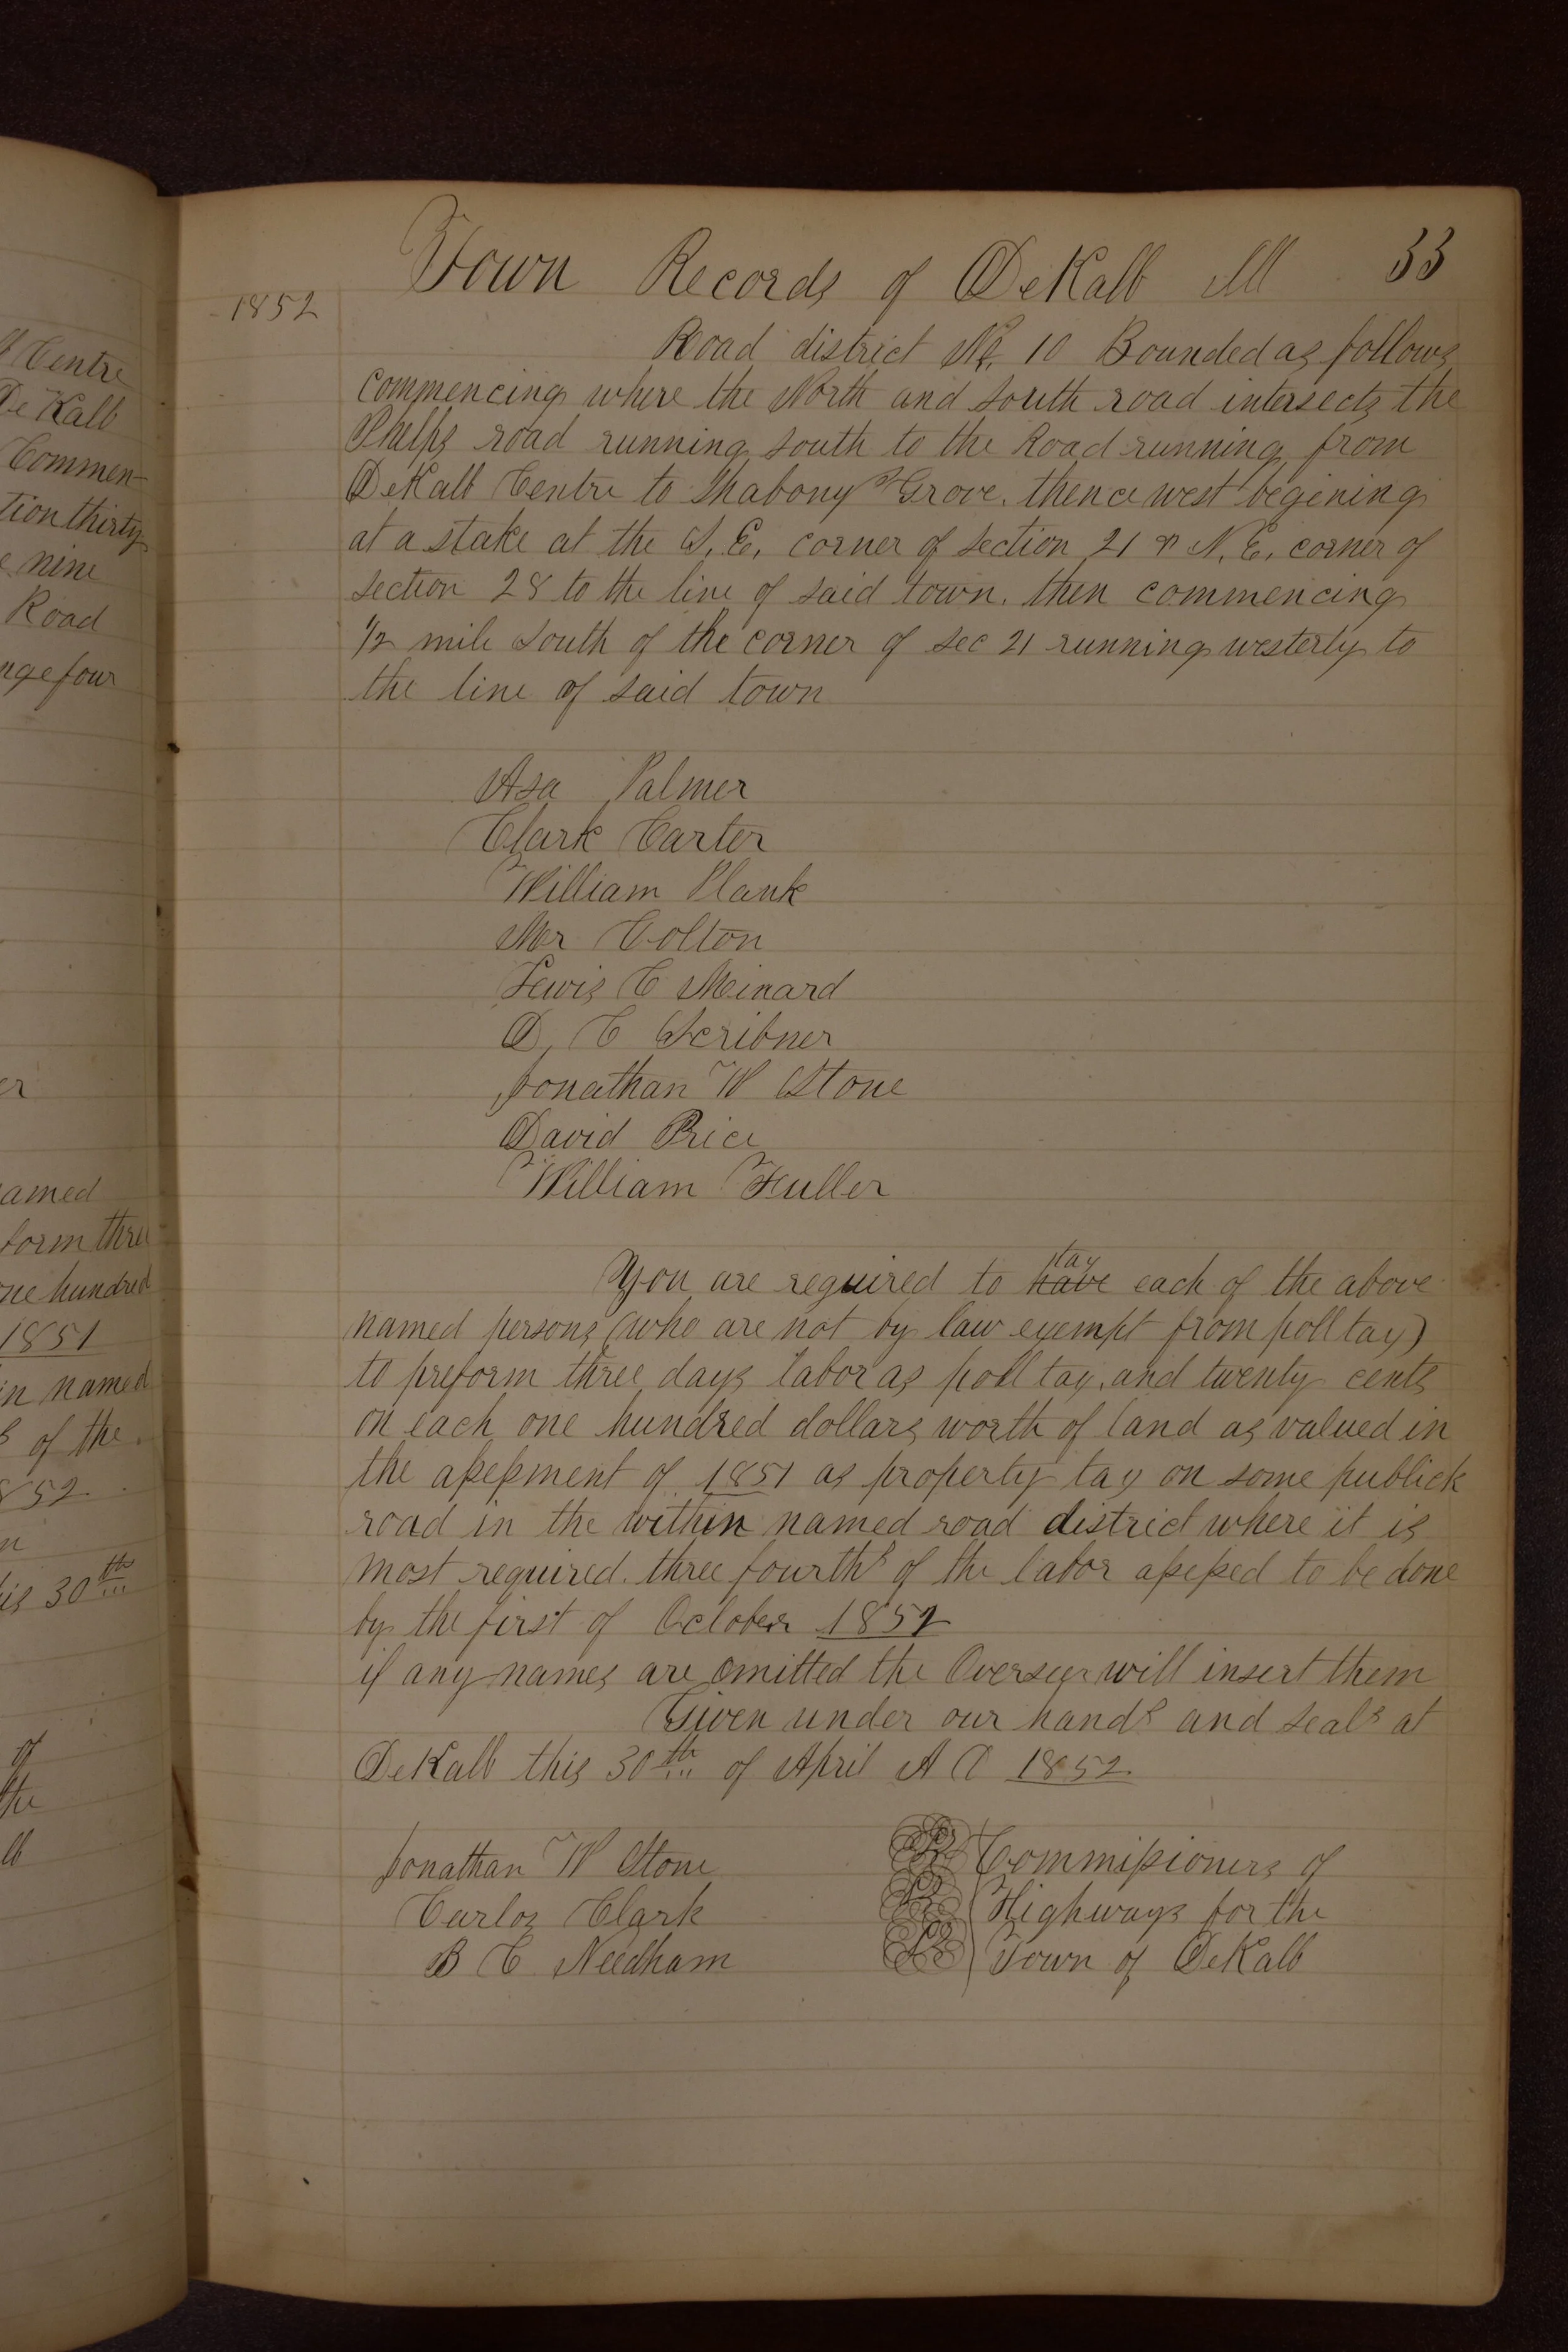 Centre
DeKalb
Commen-
tion thirty
nine
Road
nge four
er
amed
form three
one hundred
1851
in named
s of the
852
n
is 30th
of
the
lb
Town Records of DeKalb Ill 33
1852
Road district No. 10 Bounded as follows
commencing where the North and South road intersects the
Phelps road running south to the Road running from
DeKalb Centre to Shabony s Grove. thence west begining
at a stake at the S, E, corner of section 21 & N, E, corner of
section 28 to the line of said town. then commencing
1/2 mile south of the corner of sec 21 running westerly to
the line of said town
Asa Palmer
Clark Carter
William Plank
Mr Colton
Lewis C Meinard
D, C Scribner
Jonathan W Stone
David Price
William Fuller
tax
You are required to have each of the above
named persons (who are not by law exempt from poll tax)
to preform three days labor as poll tax, and twenty cents
on each one hundred dollars worth of land as valued in
the assessment of 1851 as property tax on some publick
road in the within named road district where it is
most required. three fourths of the labor assessed to be done
by the first of October 1852
if any names are omitted the Overseer will insert them
Given under our hands and seals at
DeKalb this 30th of April A D 1852.
Jonathan W Stone
Carlos Clark
B C Needham
Commissioners of
Highways for the
Town of DeKalb